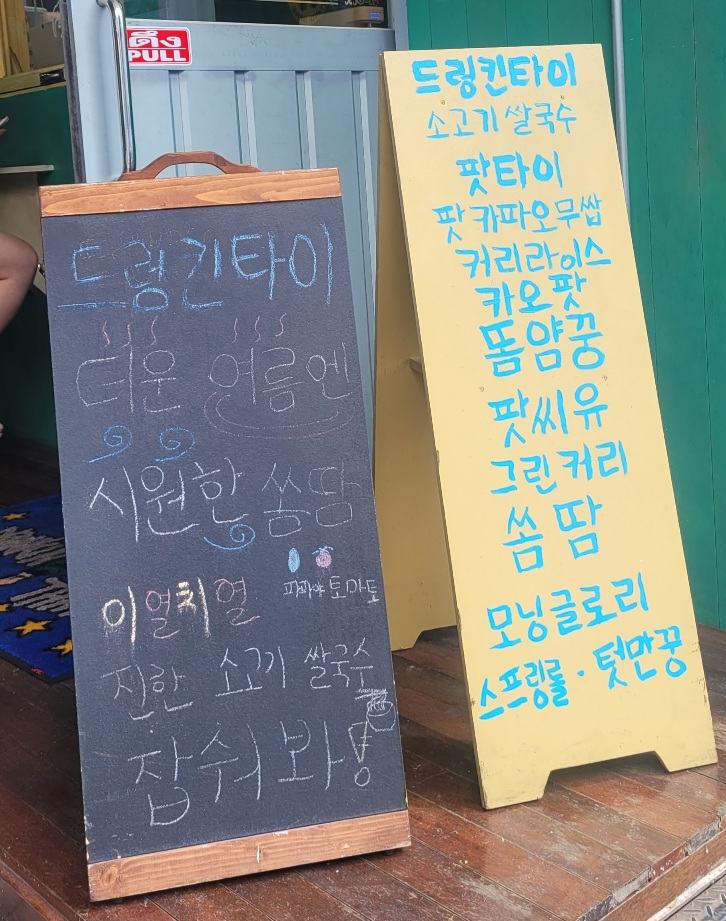 ดึง
PULL
드렁킨타이
더운 여름엔
시원한 쏨땀
파파야 토마토
이열치열
진한 소고기 쌀국수
잡숴봐용
드렁킨타이
소고기 쌀국수
팟타이
팟카파오무쌉
커리라이스
카오팟
똠얌꿍
팟씨유
그린커리
쏨땀
모닝글로리
스프링롤 · 텃만꿍